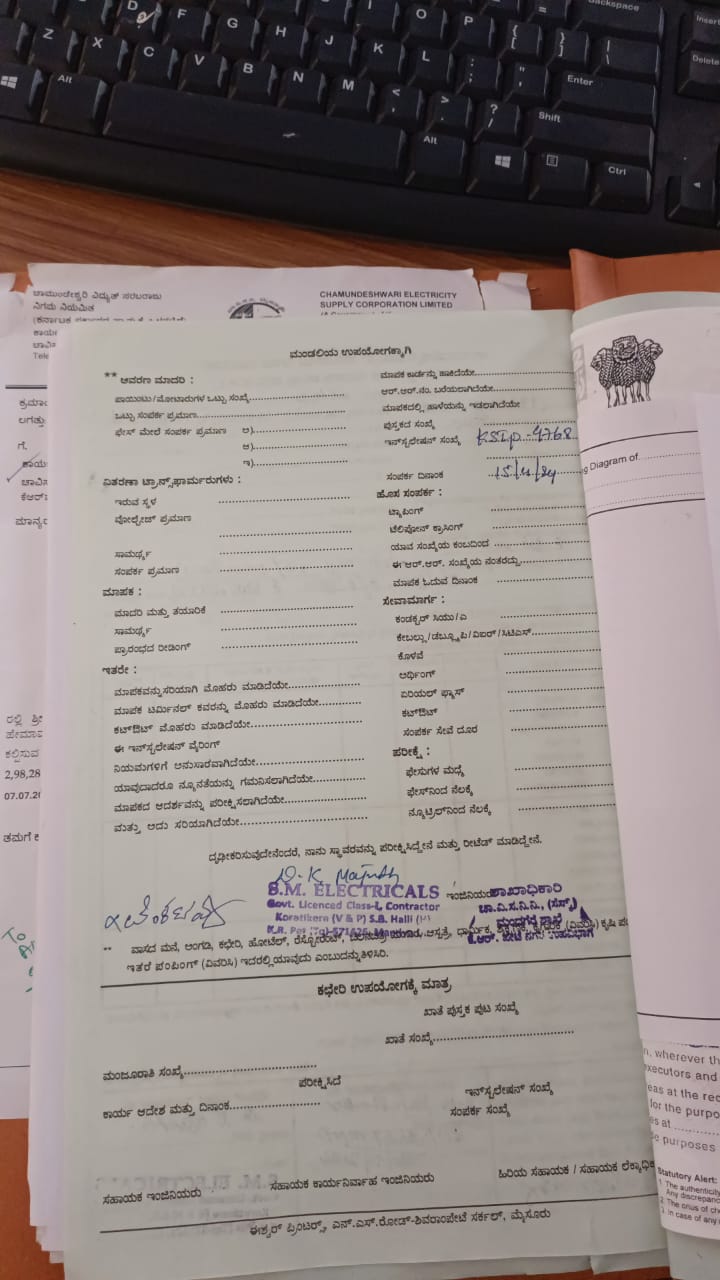 D F G H J K L O P
Backspace
Insert
Delete
Z X C V B N M
Enter
Alt
Shift
Alt
Ctrl
ಚಾಮುಂಡೇಶ್ವರಿ ವಿದ್ಯುತ್ ಸರಬರಾಜು
ನಿಗಮ ನಿಯಮಿತ
CHAMUNDESHWARI ELECTRICITY
SUPPLY CORPORATION LIMITED
ಮಂಡಲಿಯ ಉಪಯೋಗಕ್ಕಾಗಿ
** ಆವರಣ ಮಾದರಿ :
ಪಾಯಿಂಟು/ಮೋಟಾರುಗಳ ಒಟ್ಟು ಸಂಖ್ಯೆ
ಒಟ್ಟು ಸಂಪರ್ಕ ಪ್ರಮಾಣ
ಫೇಸ್ ಮೇಲೆ ಸಂಪರ್ಕ ಪ್ರಮಾಣ ಅ)
ಆ)
ಇ)
ವಿತರಣಾ ಟ್ರಾನ್ಸ್‌ಫಾರ್ಮರುಗಳು :
ಇರುವ ಸ್ಥಳ
ವೋಲ್ಟೇಜ್ ಪ್ರಮಾಣ
ಸಾಮರ್ಥ್ಯ
ಸಂಪರ್ಕ ಪ್ರಮಾಣ
ಮಾಪಕ :
ಮಾದರಿ ಮತ್ತು ತಯಾರಿಕೆ
ಸಾಮರ್ಥ್ಯ
ಪ್ರಾರಂಭದ ರೀಡಿಂಗ್
ಇತರೇ :
ಮಾಪಕವನ್ನುಸರಿಯಾಗಿ ಮೊಹರು ಮಾಡಿದೆಯೇ
ಮಾಪಕ ಟರ್ಮಿನಲ್ ಕವರನ್ನು ಮೊಹರು ಮಾಡಿದೆಯೇ
ಕಟ್‌ಔಟ್ ಮೊಹರು ಮಾಡಿದೆಯೇ
ಈ ಇನ್‌ಸ್ಟಲೇಷನ್ ವೈರಿಂಗ್
ನಿಯಮಗಳಿಗೆ ಅನುಸಾರವಾಗಿದೆಯೇ
ಯಾವುದಾದರೂ ನ್ಯೂನತೆಯನ್ನು ಗಮನಿಸಲಾಗಿದೆಯೇ
ಮಾಪಕದ ಆದರ್ಶವನ್ನು ಪರೀಕ್ಷಿಸಲಾಗಿದೆಯೇ
ಮತ್ತು ಅದು ಸರಿಯಾಗಿದೆಯೇ
ಮಾಪಕ ಕಾರ್ಡನ್ನು ಹಾಕಿದೆಯೇ
ಆರ್.ಆರ್.ನಂ. ಬರೆಯಲಾಗಿದೆಯೇ
ಮಾಪಕದಲ್ಲಿ ಹಾಳೆಯನ್ನು ಇಡಲಾಗಿದೆಯೇ
ಪುಸ್ತಕದ ಸಂಖ್ಯೆ
ಇನ್‌ಸ್ಟಲೇಷನ್ ಸಂಖ್ಯೆ KSIP-4768
ಸಂಪರ್ಕ ದಿನಾಂಕ
ಹೊಸ ಸಂಪರ್ಕ :
ಟ್ಯಾಪಿಂಗ್
ಟೆಲಿಫೋನ್ ಕ್ರಾಸಿಂಗ್
ಯಾವ ಸಂಖ್ಯೆಯ ಕಂಬದಿಂದ
ಈ ಆರ್.ಆರ್. ಸಂಖ್ಯೆಯ ನಂತರದ್ದು
ಮಾಪಕ ಓದುವ ದಿನಾಂಕ
ಸೇವಾಮಾರ್ಗ :
ಕಂಡಕ್ಟರ್ ಸಿಯು/ಎ
ಕೇಬಲ್ಲು/ಡಬ್ಲ್ಯೂಪಿ/ವಿಐಆರ್/ಸಿಟಿಎಸ್
ಕೊಳವೆ
ಅರ್ಥಿಂಗ್
ಏರಿಯಲ್ ಫ್ಯೂಸ್
ಕಟ್‌ಔಟ್
ಸಂಪರ್ಕ ಸೇವೆ ದೂರ
ಪರೀಕ್ಷೆ :
ಫೇಸುಗಳ ಮಧ್ಯೆ
ಫೇಸ್‌ನಿಂದ ನೆಲಕ್ಕೆ
ನ್ಯೂಟ್ರಲ್‌ನಿಂದ ನೆಲಕ್ಕೆ
ದೃಢೀಕರಿಸುವುದೇನೆಂದರೆ, ನಾನು ಸ್ಥಾವರವನ್ನು ಪರೀಕ್ಷಿಸಿದ್ದೇನೆ ಮತ್ತು ರೀಟೆಡ್ ಮಾಡಿದ್ದೇನೆ.
S.M. ELECTRICALS
Govt. Licenced Class-I, Contractor
Koratikere (V & P) S.B. Halli
ಶಾಖಾಧಿಕಾರಿ
ಚಾ.ವಿ.ಸ.ನಿ.ನಿ.,
** ವಾಸದ ಮನೆ, ಅಂಗಡಿ, ಕಛೇರಿ, ಹೋಟೆಲ್, ರೆಸ್ಟೋರೆಂಟ್, ಆಸ್ಪತ್ರೆ, ಧಾರ್ಮಿಕ, (ವಿವರಿಸಿ) ಕೃಷಿ
ಇತರೆ ಪಂಪಿಂಗ್ (ವಿವರಿಸಿ) ಇದರಲ್ಲಿಯಾವುದು ಎಂಬುದನ್ನುತಿಳಿಸಿರಿ.
ಕಛೇರಿ ಉಪಯೋಗಕ್ಕೆ ಮಾತ್ರ
ಖಾತೆ ಪುಸ್ತಕ ಪುಟ ಸಂಖ್ಯೆ
ಖಾತೆ ಸಂಖ್ಯೆ
ಮಂಜೂರಾತಿ ಸಂಖ್ಯೆ
ಪರೀಕ್ಷಿಸಿದೆ
ಕಾರ್ಯ ಆದೇಶ ಮತ್ತು ದಿನಾಂಕ
ಇನ್‌ಸ್ಟಲೇಷನ್ ಸಂಖ್ಯೆ
ಸಂಪರ್ಕ ಸಂಖ್ಯೆ
ಸಹಾಯಕ ಇಂಜಿನಿಯರು
ಸಹಾಯಕ ಕಾರ್ಯನಿರ್ವಾಹ ಇಂಜಿನಿಯರು
ಹಿರಿಯ ಸಹಾಯಕ / ಸಹಾಯಕ
ಈಶ್ವರ್ ಪ್ರಿಂಟರ್ಸ್, ಎನ್.ಎಸ್.ರೋಡ್-ಶಿವರಾಂಪೇಟೆ ಸರ್ಕಲ್, ಮೈಸೂರು
Diagram of
wherever
executors and
eas at the
for the
es at
purposes
Statutory Alert:
1. The authenticity
Any
2. The onus of
3. In case of any